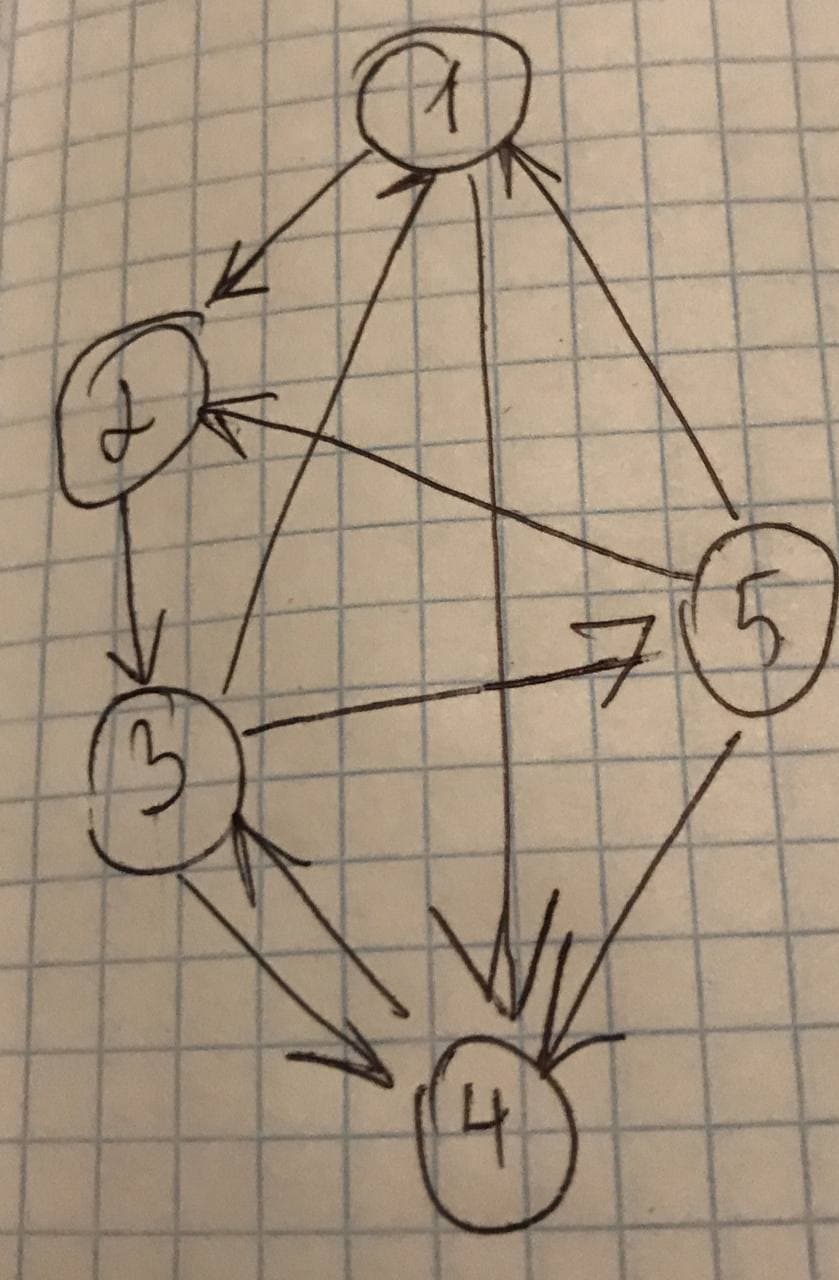 1
2
5
3
4